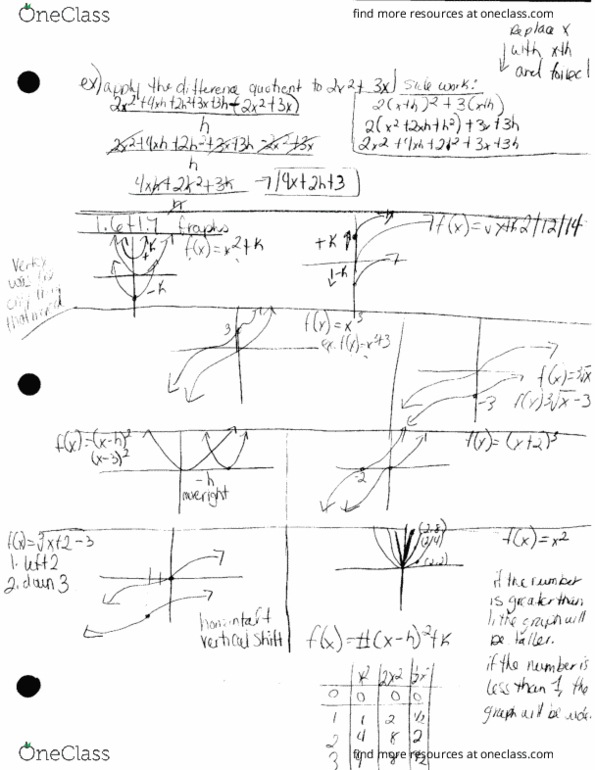 OneClass
find more resources at oneclass.com
replace x
with x+h
and foil
ex) apply the difference quotient to 2x²+3x
side work:
2x²+4xh+2h²+3x+3h-(2x²+3x)
h
2(x+h)²+3(x+h)
2(x²+2xh+h²)+3x+3h
2x²+4xh+2h²+3x+3h
2x²+4xh+2h²+3x+3h-2x²-3x
h
4xh+2h²+3h → 4x+2h+3
h
1.6+1.7 graphs
f(x)=x²+k
+k
-k
vertex
+k
-k
2/12/14
f(x)=x³
ex. f(x)=x³+3
3
f(x)=∛x
f(x)∛x-3
-3
f(x)=(x-h)²
(x-3)²
-h
move right
f(x)=(x+2)³
-2
f(x)=∛x+2-3
1. left 2
2. down 3
horizontal +
vertical shift
(2,8)
(2,4)
(2,2)
f(x)=x²
if the number
is greater than
1, the graph will
be taller.
if the number is
less than 1, the
graph will be wide.
f(x)=#(x-h)²+k
x² 2x² ½x²
0 0 0 0
1 1 2 ½
2 4 8 2
3
OneClass
find more resources at oneclass.com